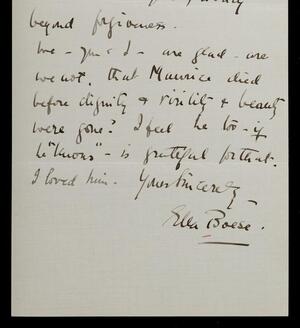 beyond forgiveness.
We - you & I - are glad - are
we not, that Maurice died
before dignity & virility & beauty
were gone? I feel he too - if
he "knows" - is grateful for that.
I loved him. Yours Sincerely
Ella Boese.